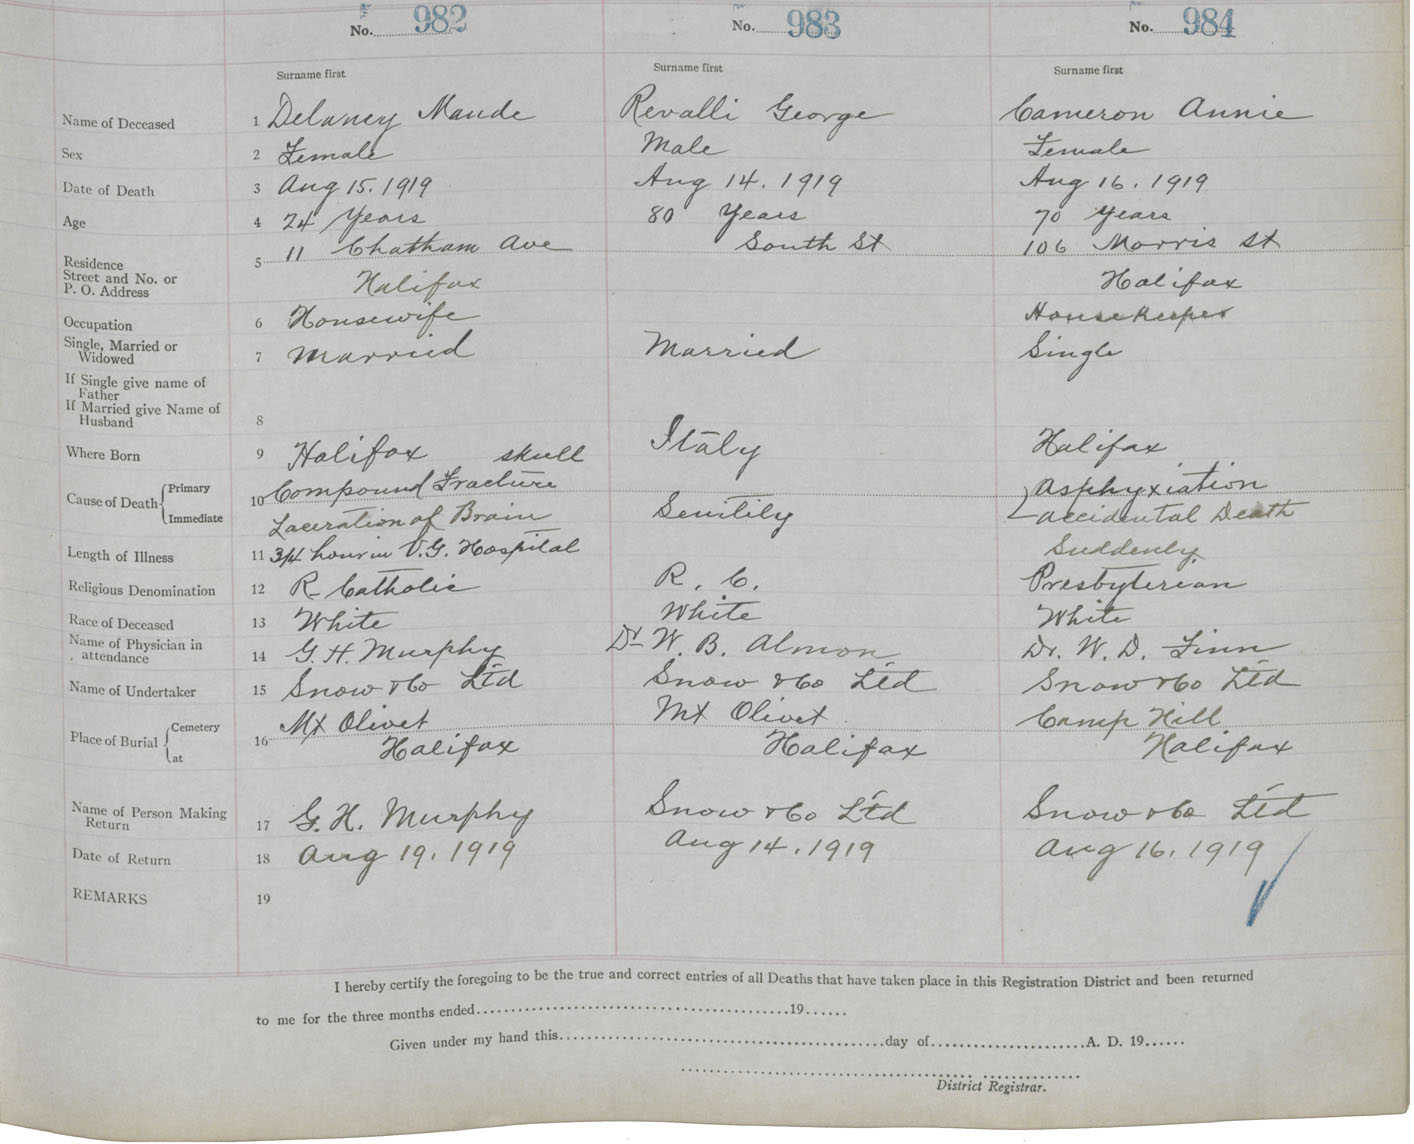 No. 982 No. 983 No. 984
Surname first Surname first Surname first
Name of Deceased 1 Delaney Maude Revalli George Cameron Annie
Sex 2 Female Male Female
Date of Death 3 Aug 15. 1919 Aug 14. 1919 Aug 16. 1919
Age 4 24 Years 80 Years 70 Years
Residence 5 11 Chatham Ave South St 106 Morris St
Street and No. or
P. O. Address Halifax Halifax
Occupation 6 Housewife Housekeeper
Single, Married or
Widowed 7 Married Married Single
If Single give name of
Father
If Married give Name of
Husband 8
Where Born 9 Halifax skull Italy Halifax
Cause of Death Primary 10 Compound Fracture Asphyxiation
Immediate Laceration of Brain Senitily accidental Death
Length of Illness 11 3/4 hour in V.G. Hospital Suddenly
Religious Denomination 12 R Catholic R. C. Presbyterian
Race of Deceased 13 White White White
Name of Physician in
attendance 14 G. H. Murphy Dr W. B. Almon Dr. W. D. Finn
Name of Undertaker 15 Snow & Co Ltd Snow & Co Ltd Snow & Co Ltd
Place of Burial Cemetery 16 Mt Olivet Mt Olivet Camp Hill
at Halifax Halifax Halifax
Name of Person Making
Return 17 G. H. Murphy Snow & Co Ltd Snow & Co Ltd
Date of Return 18 Aug 19. 1919 Aug 14. 1919 Aug 16. 1919
REMARKS 19
I hereby certify the foregoing to be the true and correct entries of all Deaths that have taken place in this Registration District and been returned
to me for the three months ended........................................19......
Given under my hand this........................................day of....................A. D. 19......
District Registrar.